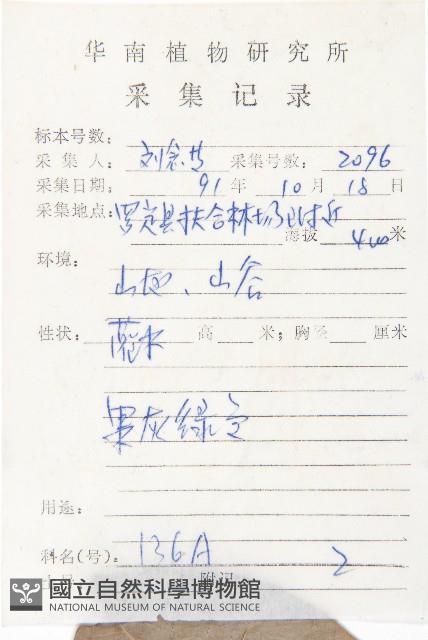 华南植物研究所
采集记录
标本号数:
采集人: 刘念 采集号数: 2096
采集日期: 91年 10月 18日
采集地点: 罗定县扶合林场附近
海拔 400米
环境:
山地、山谷
性状: 灌木 高 米; 胸径 厘米
果灰绿色
用途:
科名(号): 136A 2
附记
國立自然科學博物館
NATIONAL MUSEUM OF NATURAL SCIENCE